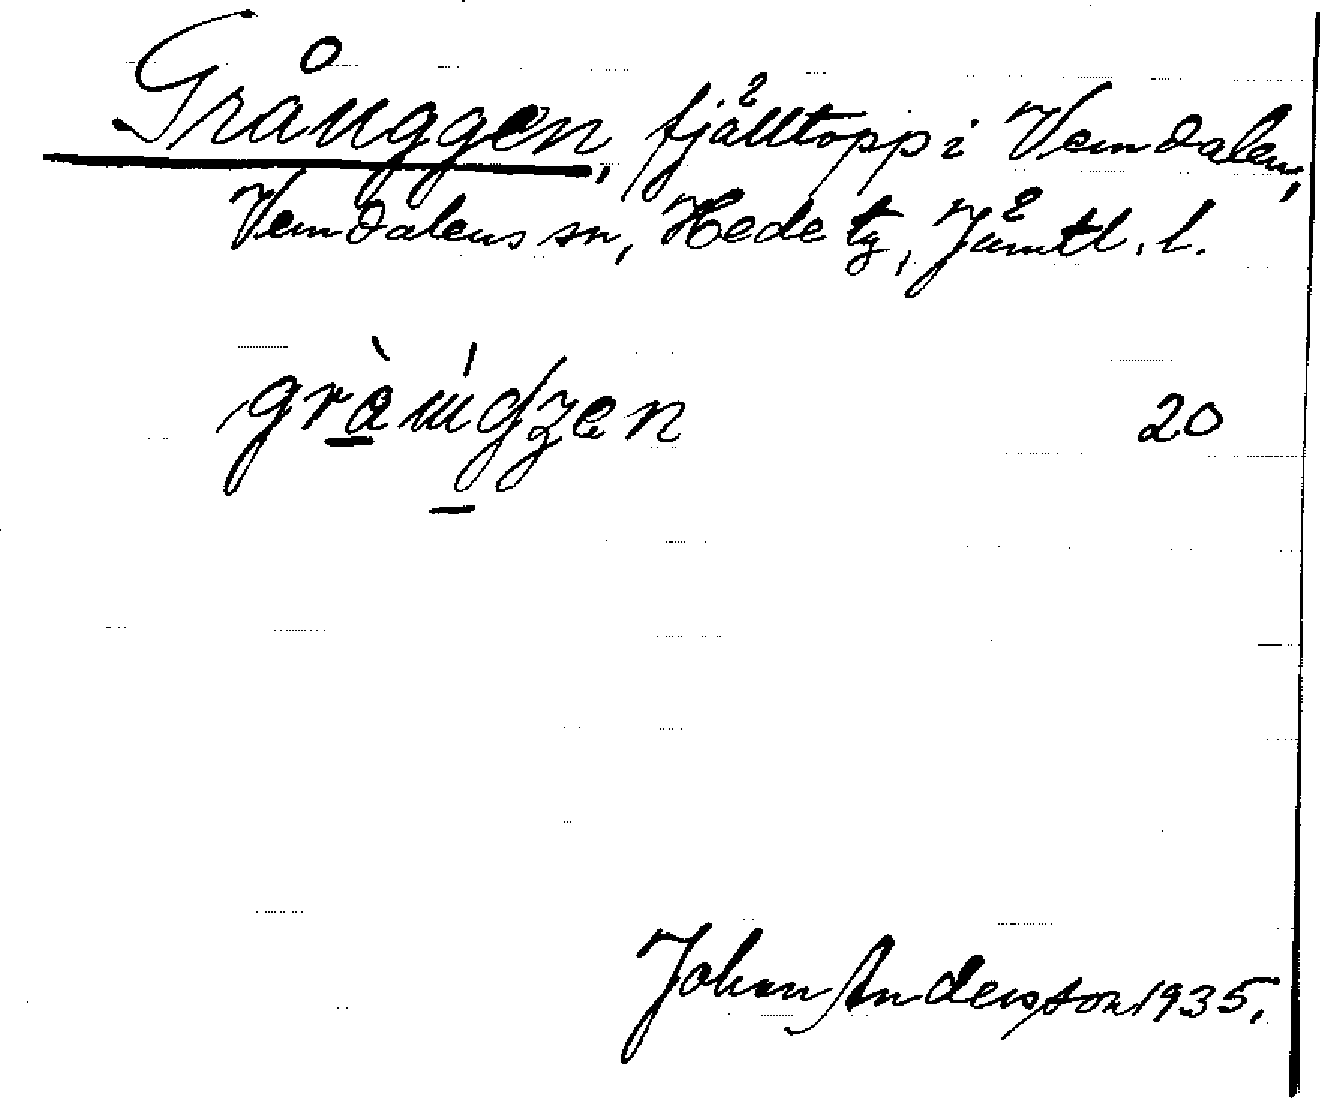 Grånggen, fjälltopp i Vemdalen,
Vemdalens sn, Hede tg, Jämtl. l.
20
Johan Andersson 1935.